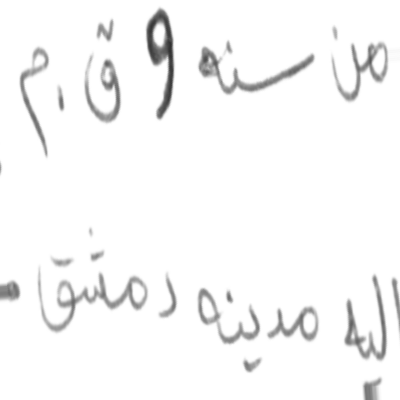 من سنه 9 ق.م
اليه مدينه دمشق -